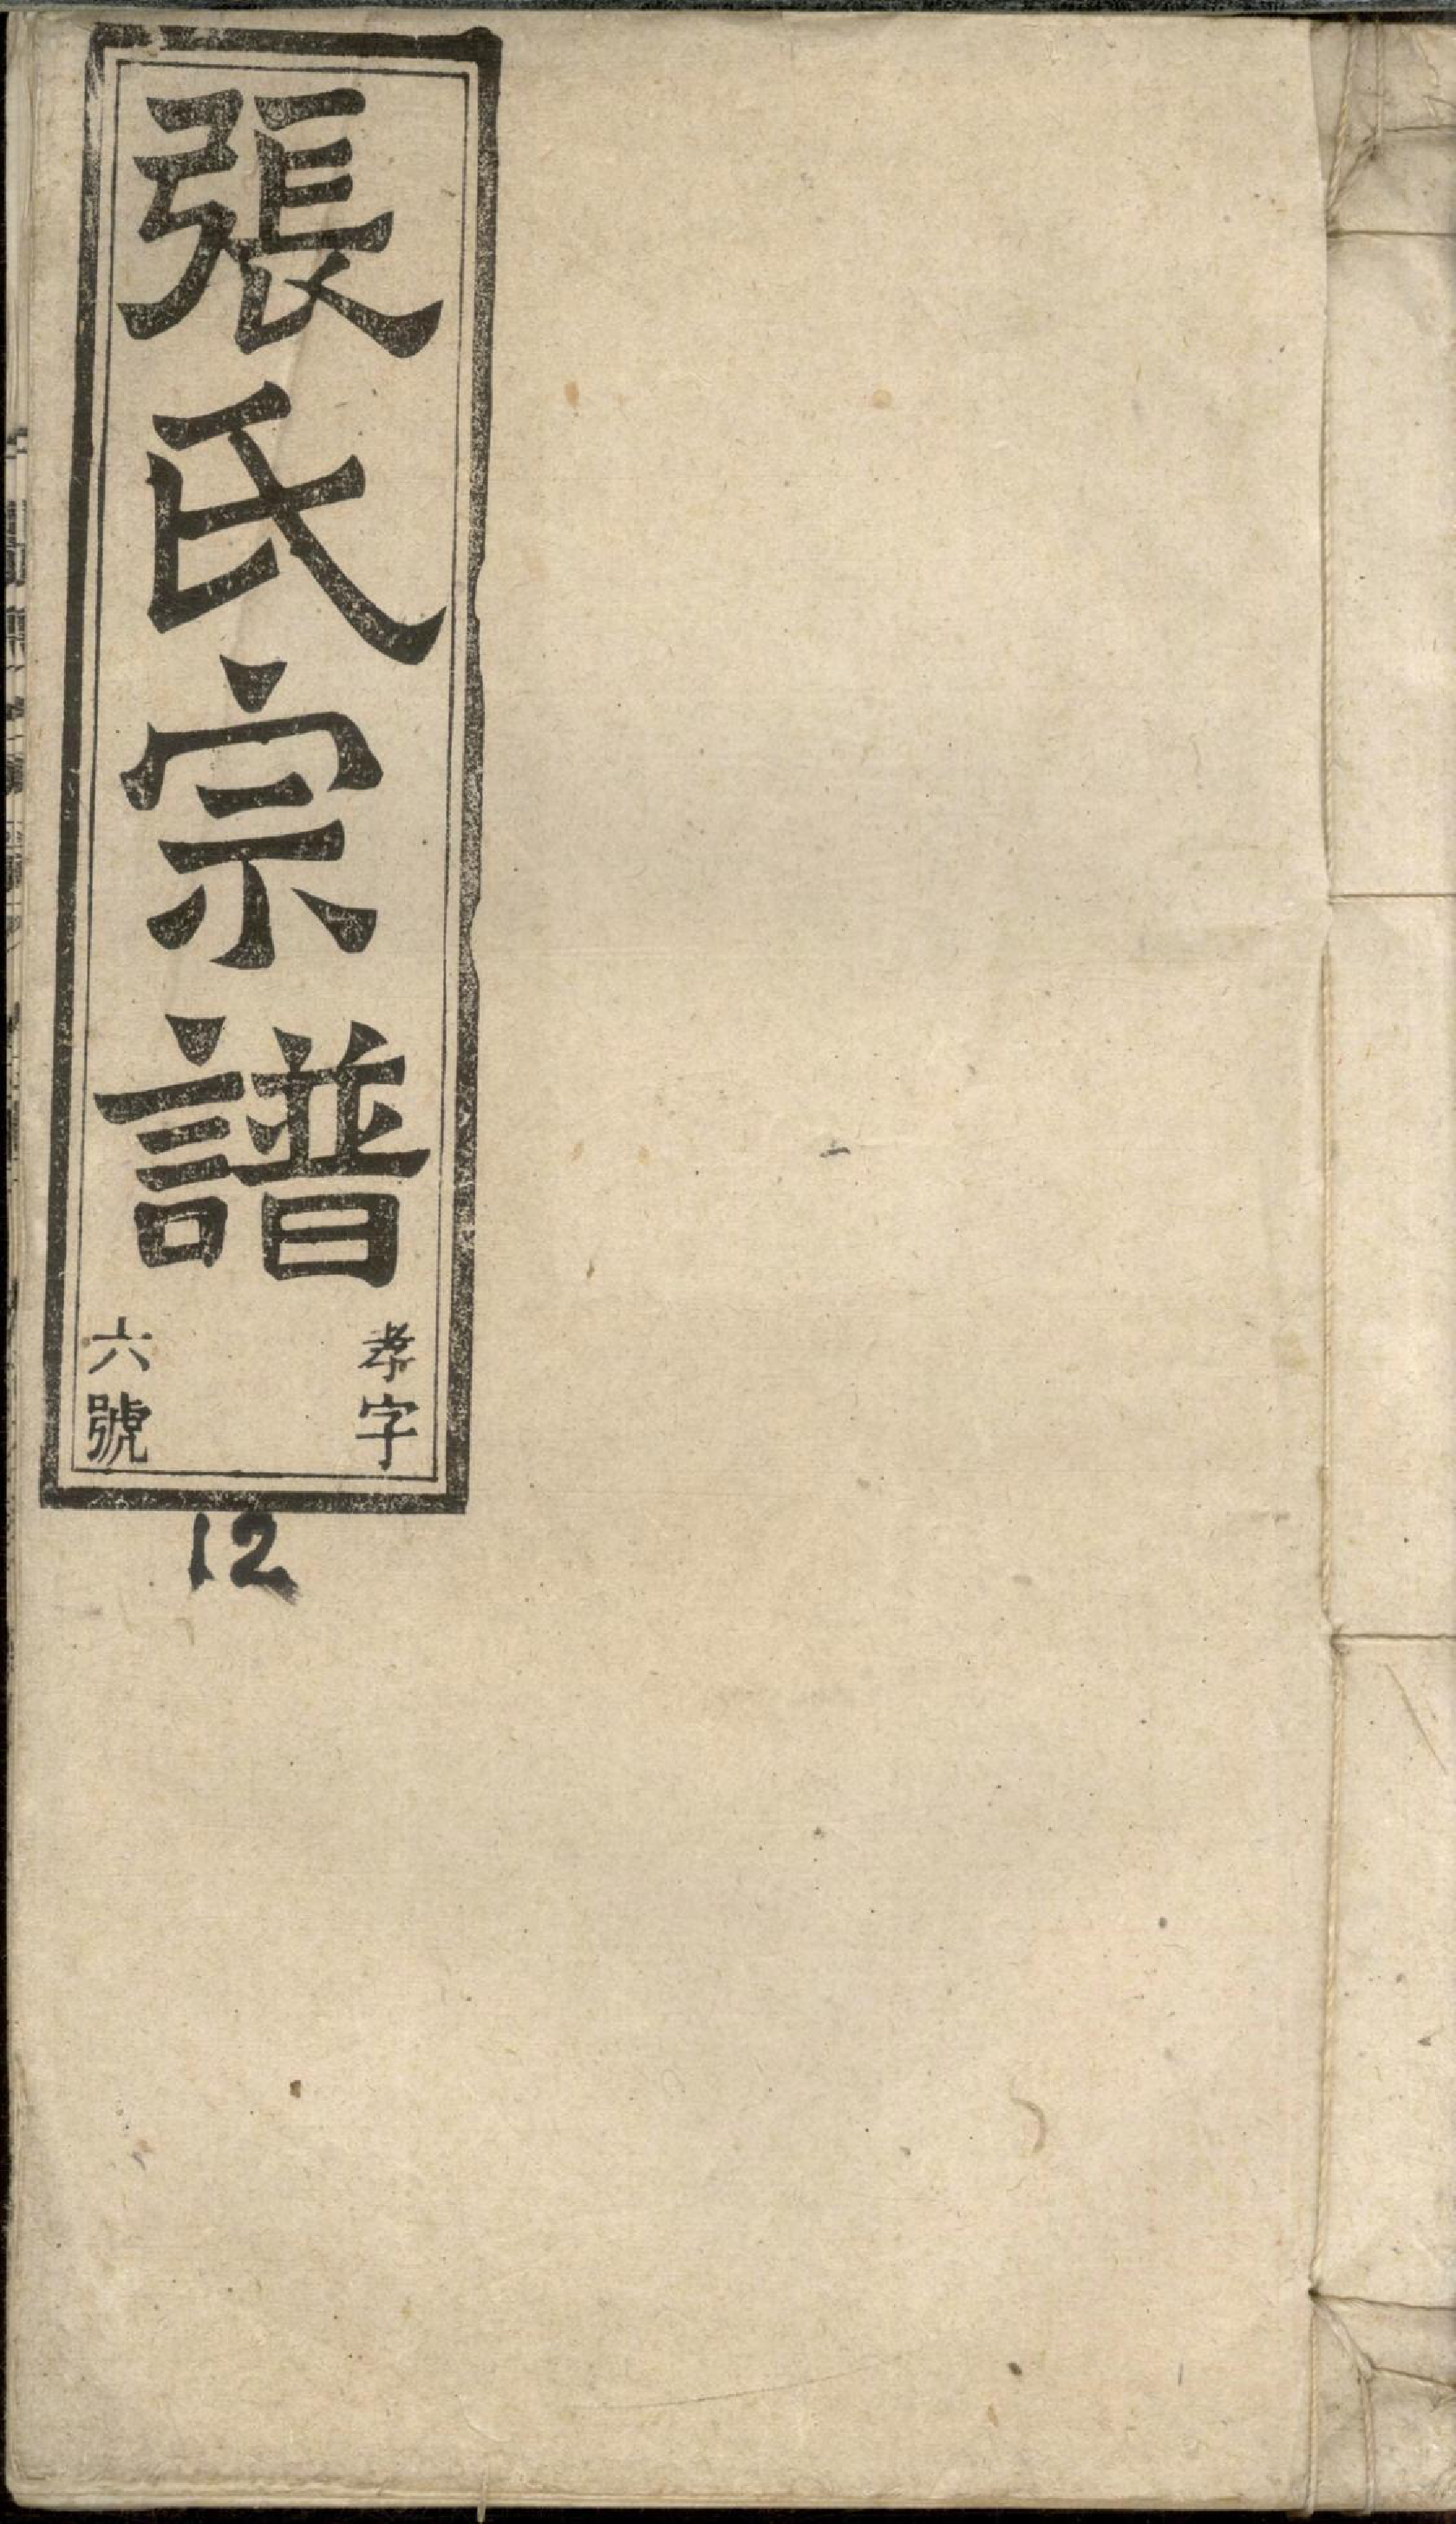 張氏宗譜
孝字
六號
12